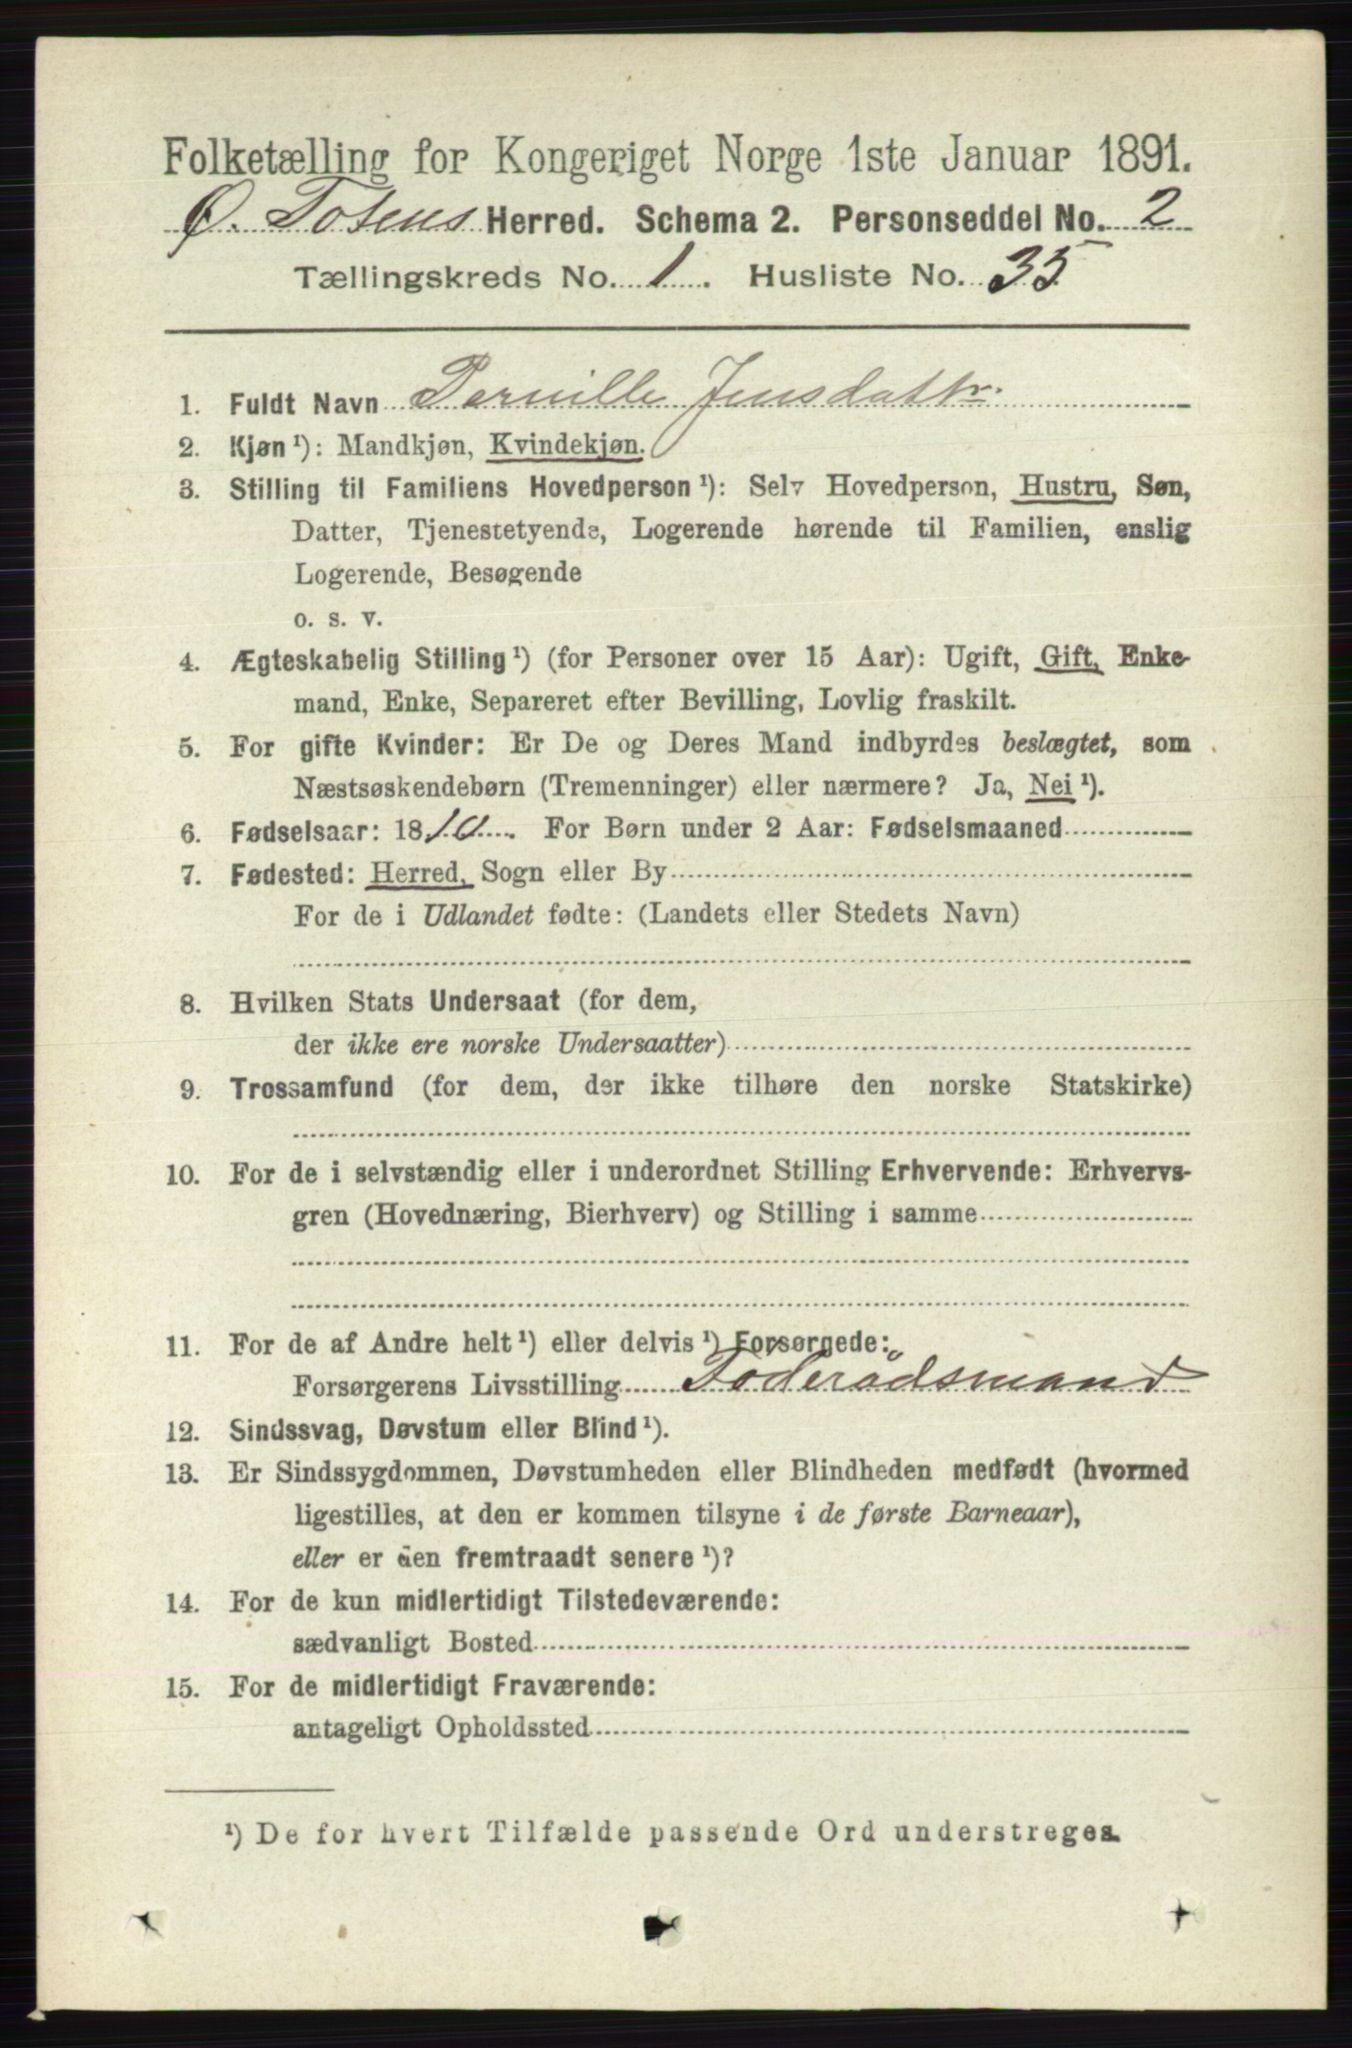 Folketælling for Kongeriget Norge 1ste Januar 1891.
Ø. Totens Herred. Schema 2. Personseddel No. 2
Tællingskreds No. 1. Husliste No. 35
1. Fuldt Navn Pernille Jensdattr.
2. Kjøn¹): Mandkjøn, Kvindekjøn.
3. Stilling til Familiens Hovedperson¹): Selv Hovedperson, Hustru, Søn,
Datter, Tjenestetyende, Logerende hørende til Familien, enslig
Logerende, Besøgende
o. s. v.
4. Ægteskabelig Stilling¹) (for Personer over 15 Aar): Ugift, Gift, Enke-
mand, Enke, Separeret efter Bevilling, Lovlig fraskilt.
5. For gifte Kvinder: Er De og Deres Mand indbyrdes beslægtet, som
Næstsøskendebørn (Tremenninger) eller nærmere? Ja, Nei¹).
6. Fødselsaar: 1810. For Børn under 2 Aar: Fødselsmaaned
7. Fødested: Herred, Sogn eller By
For de i Udlandet fødte: (Landets eller Stedets Navn)
8. Hvilken Stats Undersaat (for dem,
der ikke ere norske Undersaatter)
9. Trossamfund (for dem, der ikke tilhøre den norske Statskirke)
10. For de i selvstændig eller i underordnet Stilling Erhvervende: Erhvervs-
gren (Hovednæring, Bierhverv) og Stilling i samme
11. For de af Andre helt¹) eller delvis¹) Forsørgede:
Forsørgerens Livsstilling Föderådsmand
12. Sindssvag, Døvstum eller Blind¹).
13. Er Sindssygdommen, Døvstumheden eller Blindheden medfødt (hvormed
ligestilles, at den er kommen tilsyne i de første Barneaar),
eller er den fremtraadt senere¹)?
14. For de kun midlertidigt Tilstedeværende:
sædvanligt Bosted
15. For de midlertidigt Fraværende:
antageligt Opholdssted
¹) De for hvert Tilfælde passende Ord understreges.